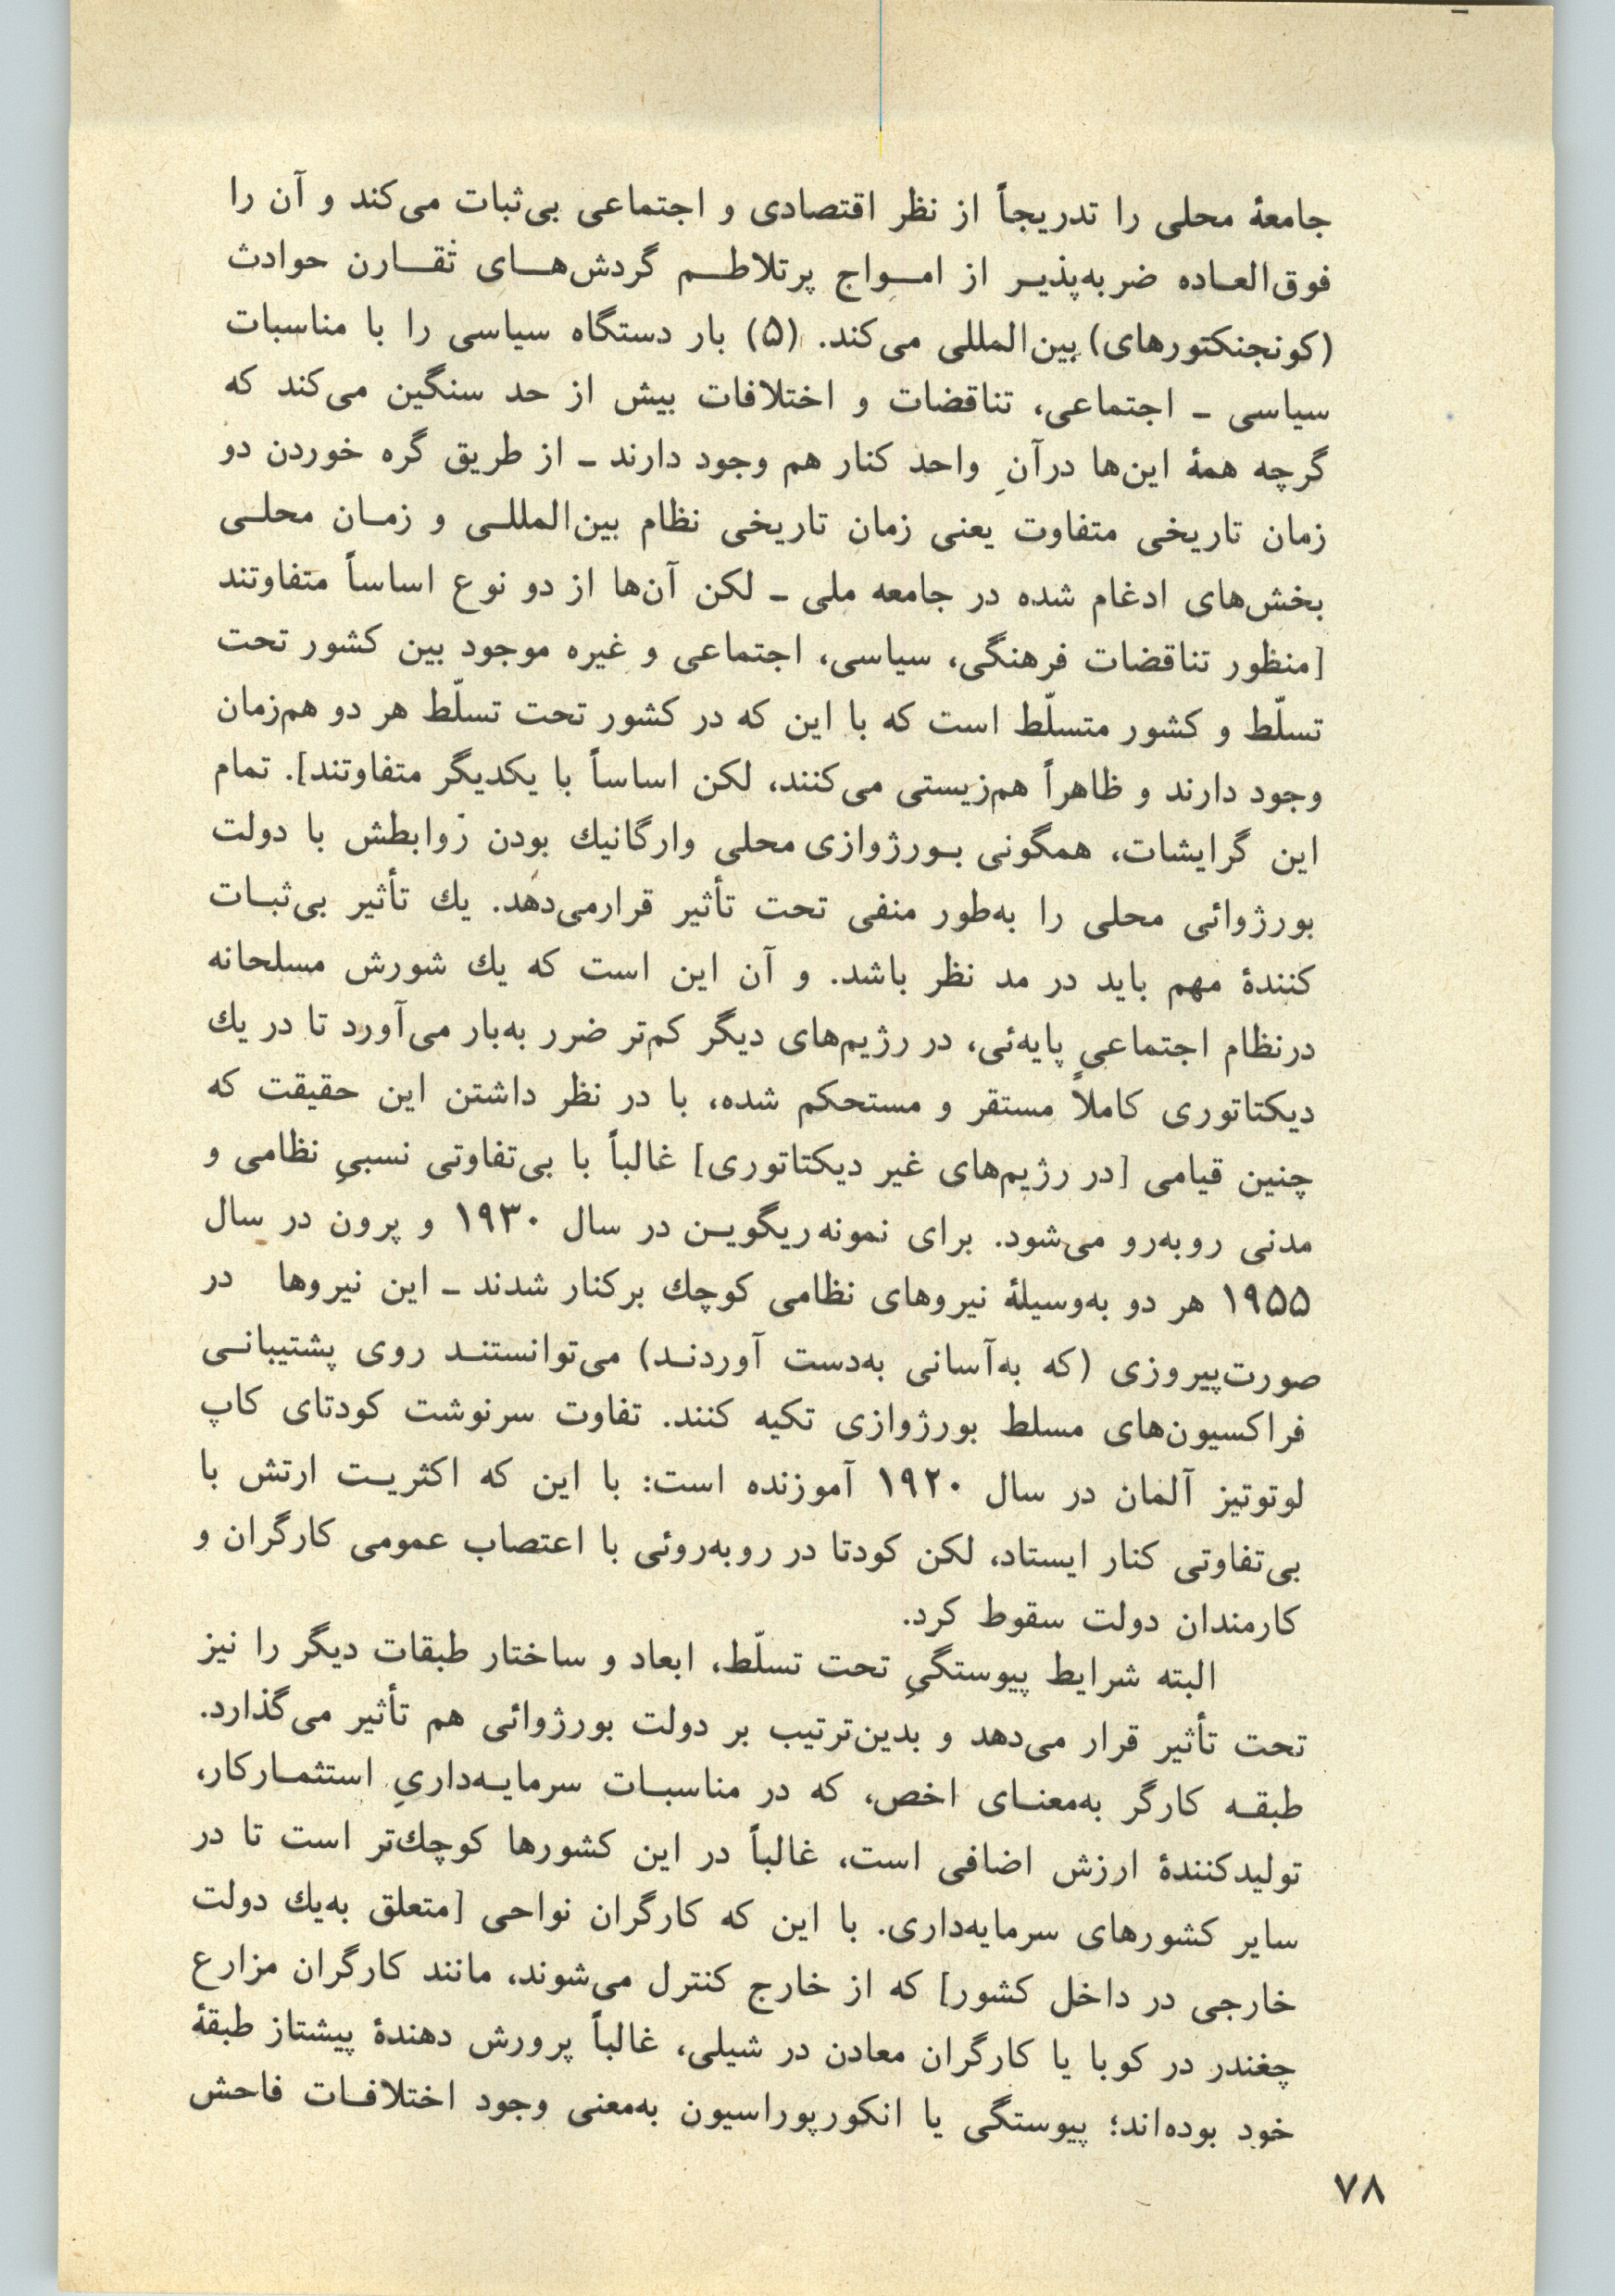 جامعهٔ محلی را تدریجاً از نظر اقتصادی و اجتماعی بی‌ثبات می‌کند و آن را
فوق‌العـاده ضربه‌پذیـر از امـواج پرتلاطـم گردش‌هـای تقـارن حوادث
(کونجنکتورهای) بین‌المللی می‌کند. (۵) بار دستگاه سیاسی را با مناسبات
سیاسی ـ اجتماعی، تناقضات و اختلافات بیش از حد سنگین می‌کند که
گرچه همهٔ این‌ها درآنِ واحد کنار هم وجود دارند ـ از طریق گره خوردن دو
زمان تاریخی متفاوت یعنی زمان تاریخی نظام بین‌المللـی و زمـان محلـی
بخش‌های ادغام شده در جامعه ملی ـ لکن آن‌ها از دو نوع اساساً متفاوتند
[منظور تناقضات فرهنگی، سیاسی، اجتماعی و غیره موجود بین کشور تحت
تسلّط و کشور متسلّط است که با این که در کشور تحت تسلّط هر دو هم‌زمان
وجود دارند و ظاهراً هم‌زیستی می‌کنند، لکن اساساً با یکدیگر متفاوتند]. تمام
این گرایشات، همگونی بـورژوازی محلی وارگانیك بودن روابطش با دولت
بورژوائی محلی را به‌طور منفی تحت تأثیر قرارمی‌دهد. یك تأثیر بی‌ثبـات
کنندهٔ مهم باید در مد نظر باشد. و آن این است که یك شورش مسلحانه
درنظام اجتماعیِ پایه‌ئی، در رژیم‌های دیگر کم‌تر ضرر به‌بار می‌آورد تا در یك
دیکتاتوری کاملاً مستقر و مستحکم شده، با در نظر داشتن این حقیقت که
چنین قیامی [در رژیم‌های غیر دیکتاتوری] غالباً با بی‌تفاوتی نسبیِ نظامی و
مدنی روبه‌رو می‌شود. برای نمونه ریگویـن در سال ۱۹۳۰ و پرون در سال
۱۹۵۵ هر دو به‌وسیلهٔ نیروهای نظامی کوچك برکنار شدند ـ این نیروها در
صورت‌پیروزی (که به‌آسانی به‌دست آوردنـد) می‌توانستنـد روی پشتیبانـی
فراکسیون‌های مسلط بورژوازی تکیه کنند. تفاوت سرنوشت کودتای کاپ
لوتوتیز آلمان در سال ۱۹۲۰ آموزنده است: با این که اکثریـت ارتش با
بی‌تفاوتی کنار ایستاد، لکن کودتا در روبه‌روئی با اعتصاب عمومی کارگران و
کارمندان دولت سقوط کرد.
البته شرایط پیوستگیِ تحت تسلّط، ابعاد و ساختار طبقات دیگر را نیز
تحت تأثیر قرار می‌دهد و بدین‌ترتیب بر دولت بورژوائی هم تأثیر می‌گذارد.
طبقـه کارگر به‌معنـای اخص، که در مناسبـات سرمایـه‌داریِ استثمـارکار،
تولیدکنندهٔ ارزش اضافی است، غالباً در این کشورها کوچك‌تر است تا در
سایر کشورهای سرمایه‌داری. با این که کارگران نواحی [متعلق به‌یك دولت
خارجی در داخل کشور] که از خارج کنترل می‌شوند، مانند کارگران مزارع
چغندر در کوبا یا کارگران معادن در شیلی، غالباً پرورش دهندهٔ پیشتاز طبقهٔ
خود بوده‌اند؛ پیوستگی یا انکورپوراسیون به‌معنی وجود اختلافـات فاحش
۷۸